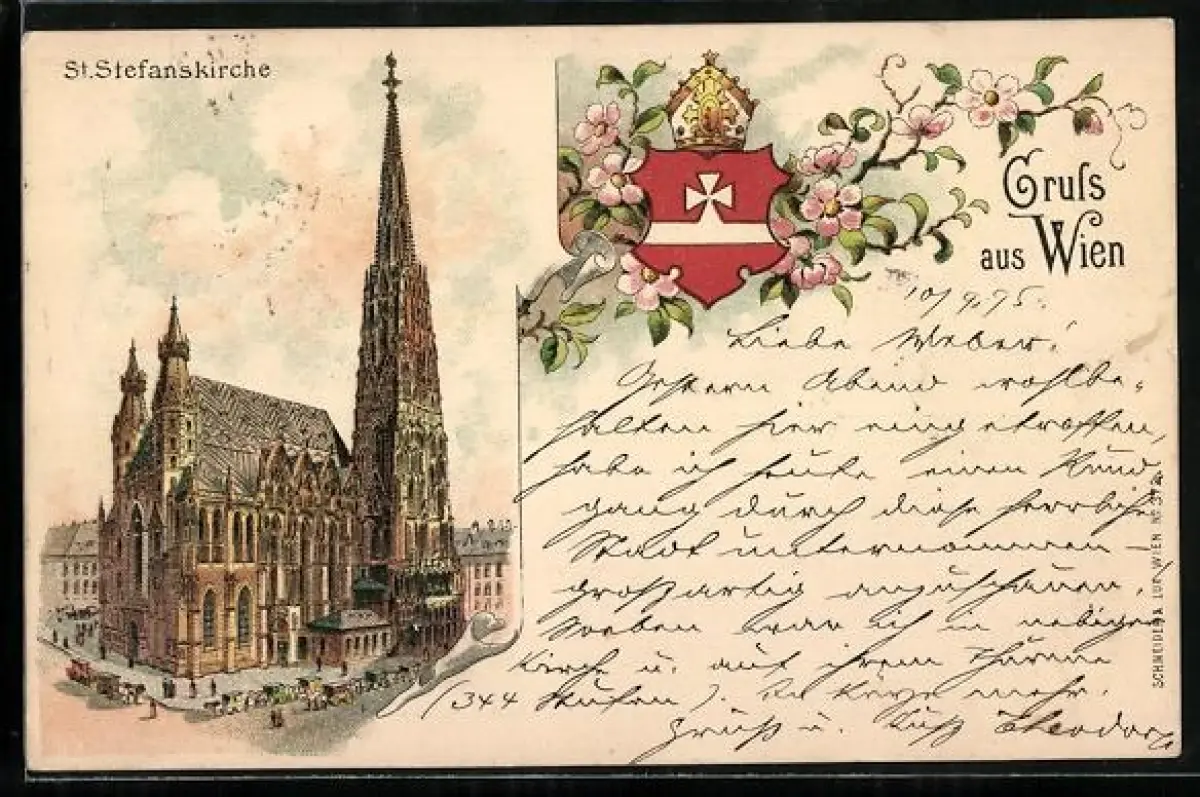 St. Stefanskirche
Gruss
aus Wien
10/9.95.
Liebe Weber!
Gestern Abend wohlbe-
halten hier eingetroffen,
habe ich heute einen Rund
gang durch diese herrliche
Stadt unternommen –
großartig anzuschauen.
Soeben war ich in nebiger
Kirche u. auf ihrem Thurme
(344 Stufen). In Kürze mehr.
Gruß u. Kuß Theodor
SCHNEIDER & LUX, WIEN No